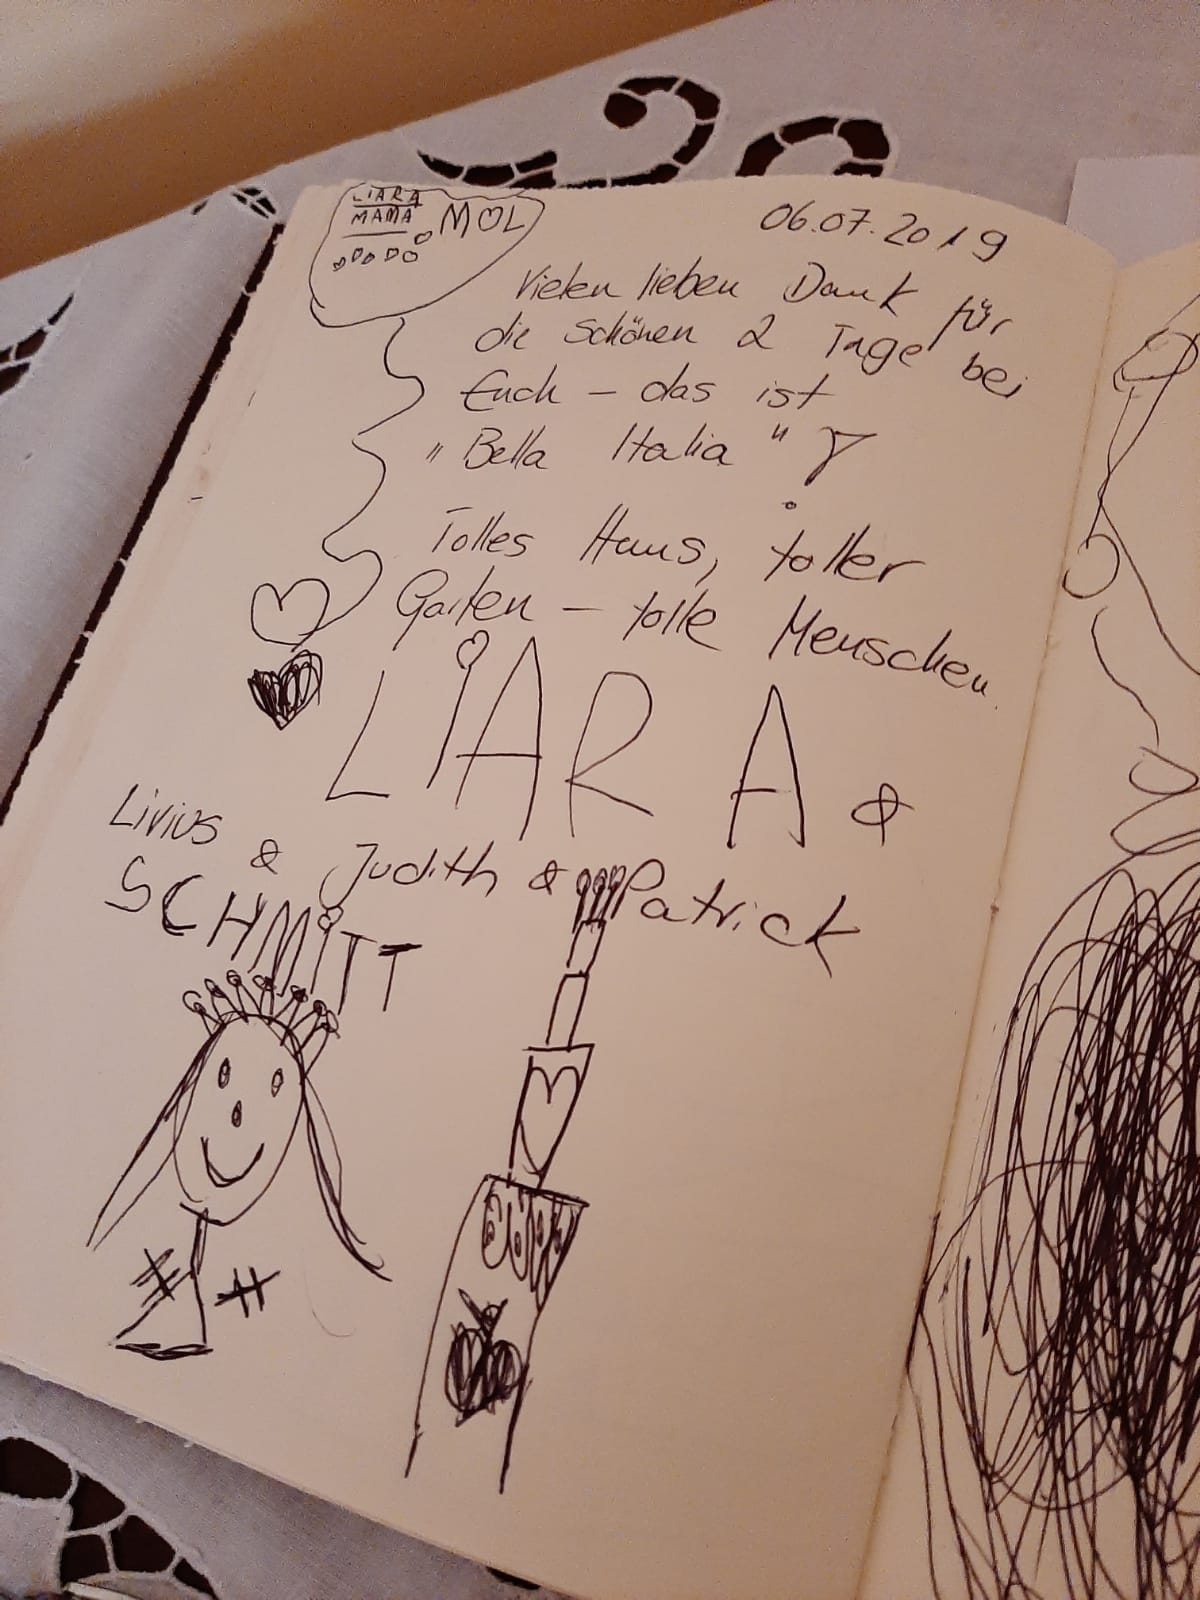 LIARA
MAMA
MOL
06.07.2019
Vielen lieben Dank für
die schönen 2 Tage bei
Euch – das ist
"Bella Italia"!
Tolles Haus, toller
Garten – tolle Menschen.
LIARA &
Livius & Judith & Patrick
SCHMITT